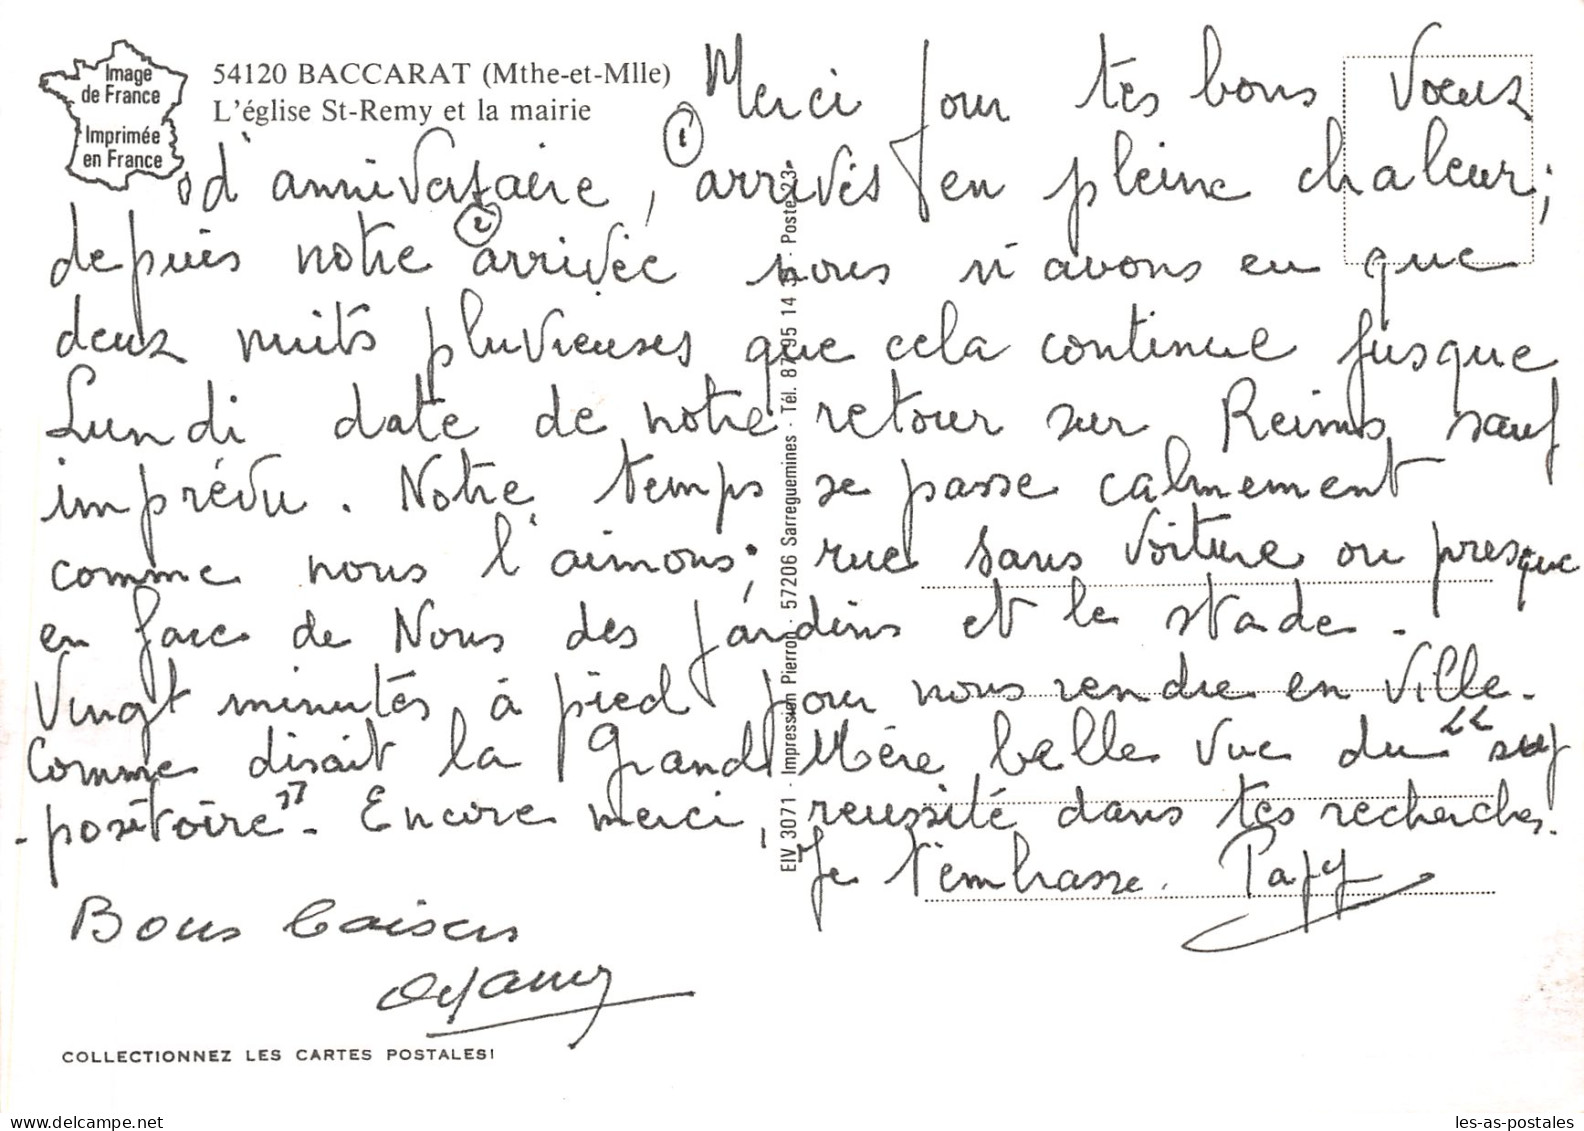 Image
de France
Imprimée
en France
54120 BACCARAT (Mthe-et-Mlle)
L'église St-Remy et la mairie
Merci pour tes bons vœux
d'anniversaire, ① arrivés en pleine chaleur;
depuis notre ② arrivée nous n'avons eu que
deux nuits pluvieuses que cela continue jusque
Lundi date de notre retour sur Reims, sauf
imprévu. Notre temps se passe calmement
comme nous l'aimons; rue sans voiture ou presque
en face de Nous des jardins et le stade.
Vingt minutes à pied pour nous rendre en Ville.
Comme disait la Grand Mère belle vue du "sup
-positoire". Encore merci, réussite dans tes recherches.
Je t'embrasse. Papy
Bons baisers
COLLECTIONNEZ LES CARTES POSTALES!
EIV 3071 - Impression Pierron - 57206 Sarreguemines - Tél. 87 95 14 3 - Poste 3
delcampe.net
les-as-postales